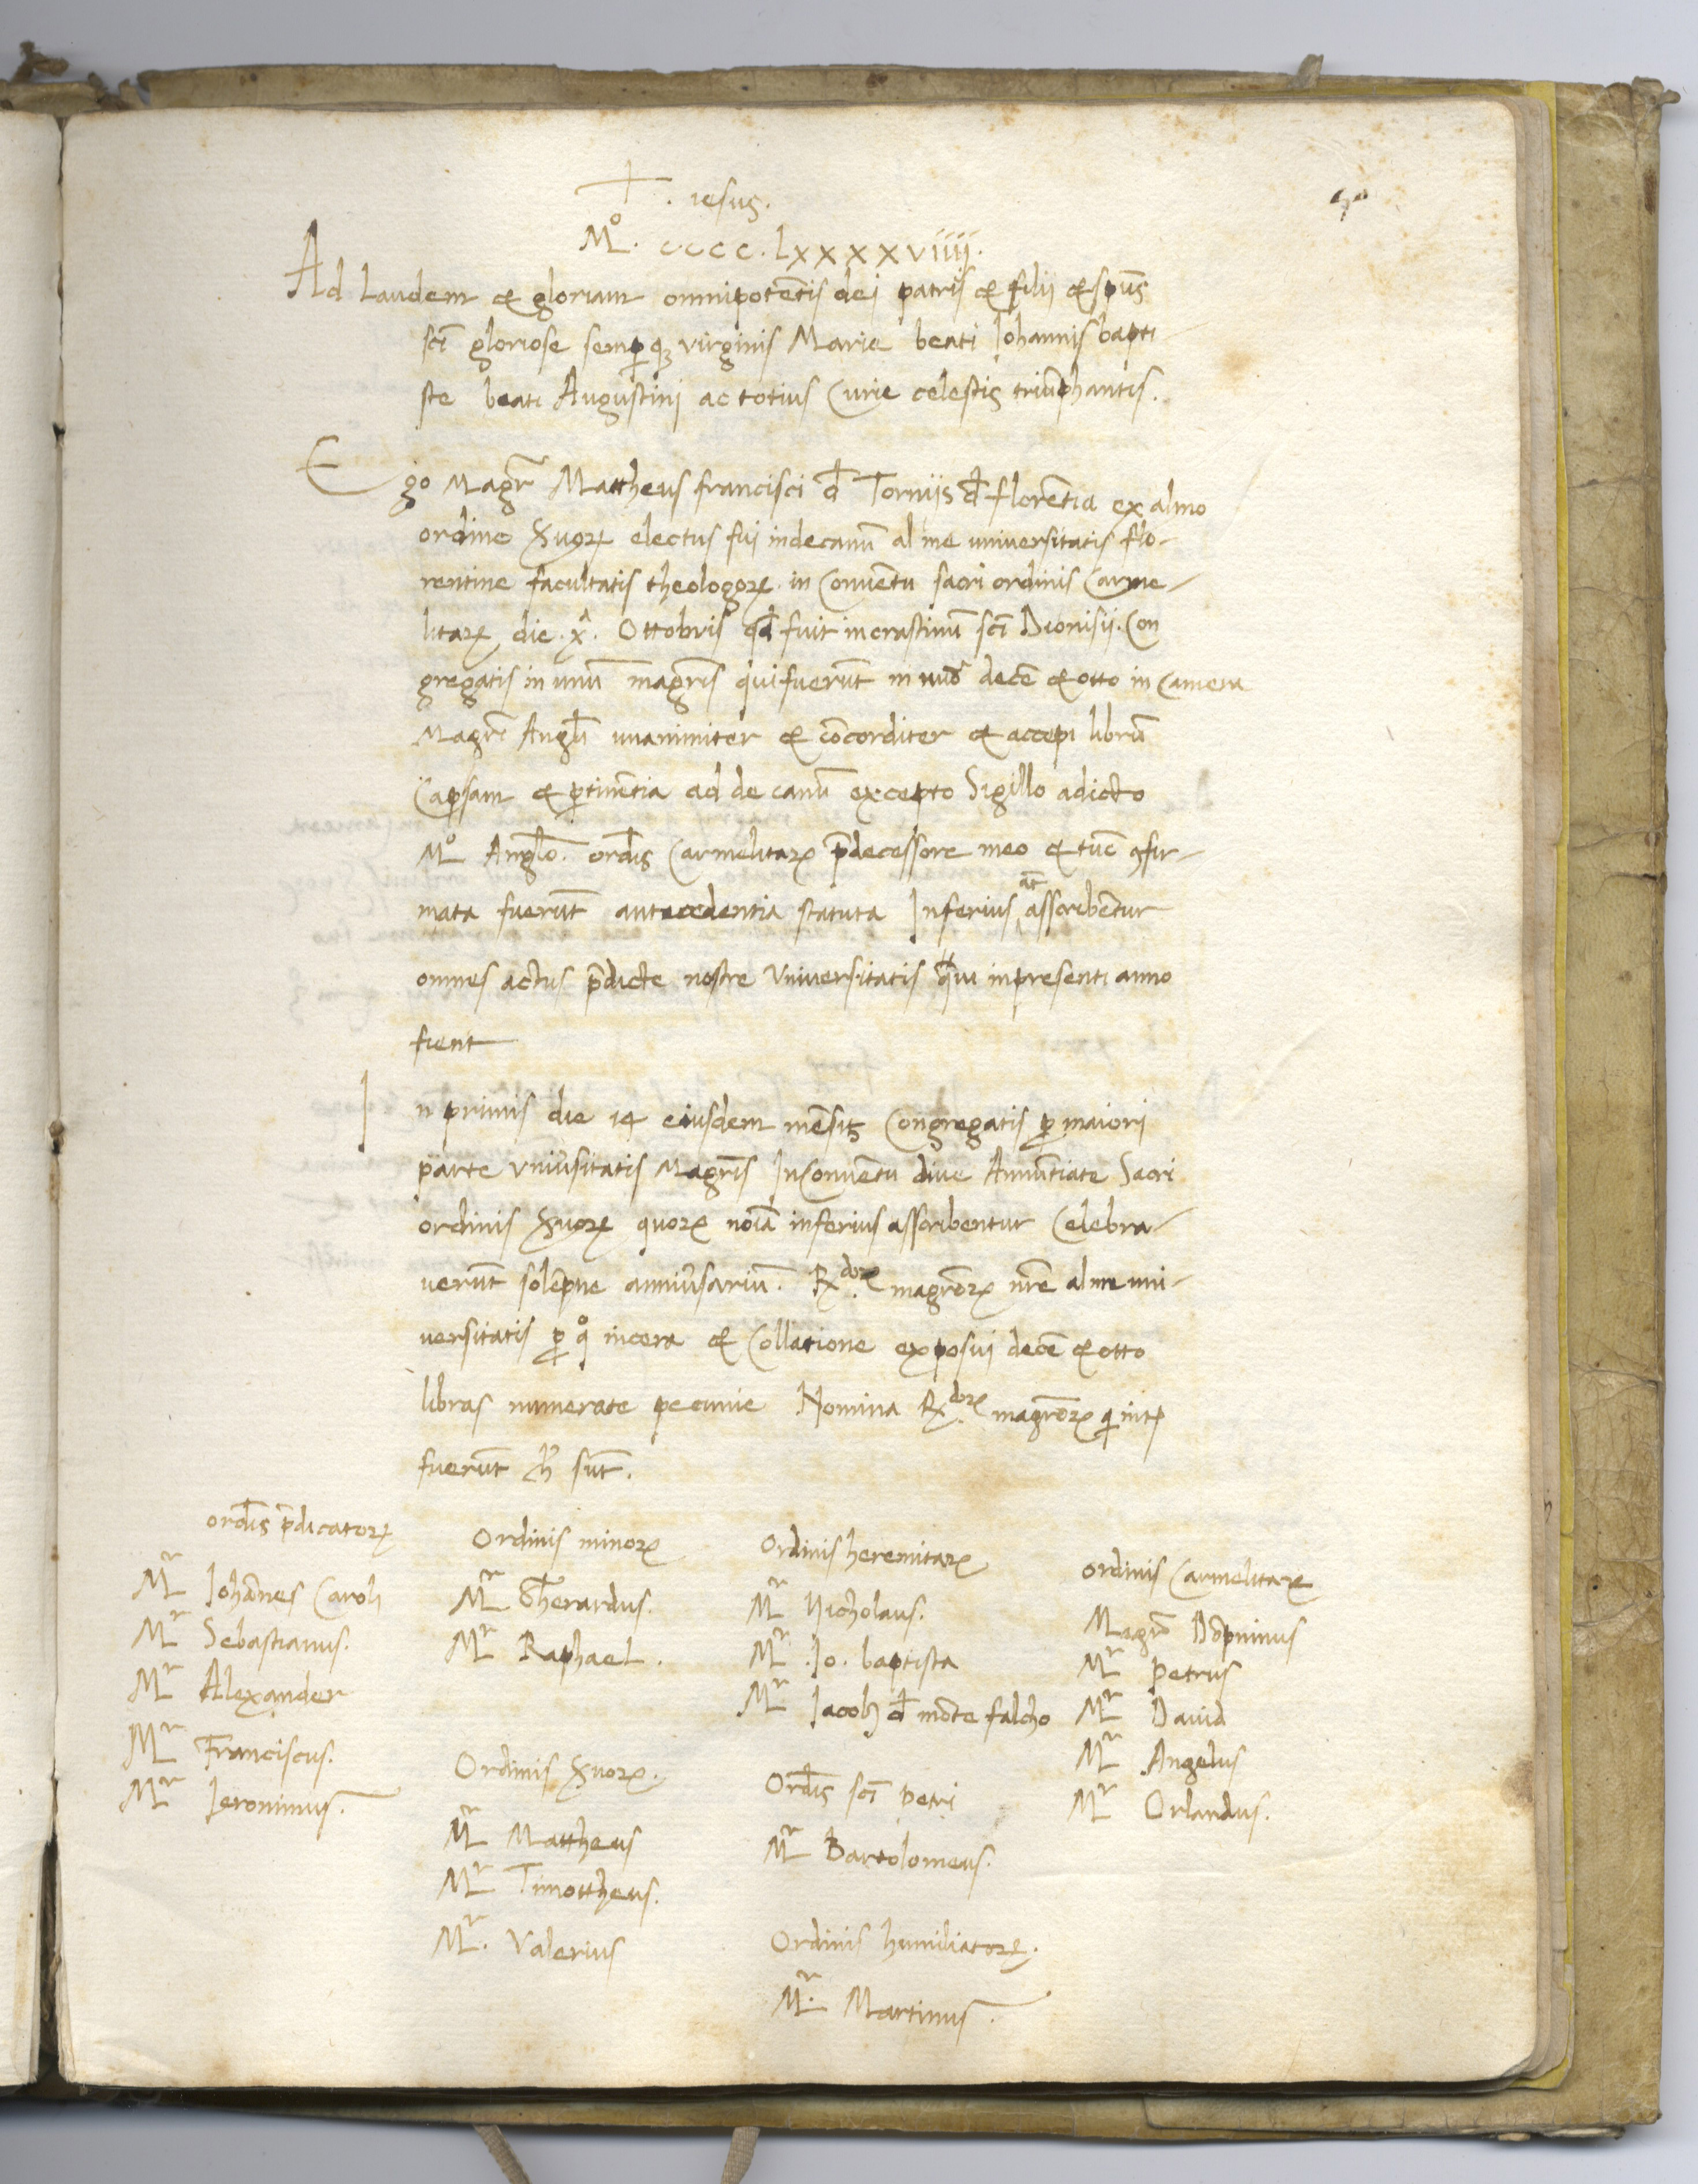 . iesus.
Mº. cccc. Lxxxxviiij.
Ad Laudem et gloriam omnipotētis dei patris et filii et spūs
scī gloriose sempqꝫ virginis Marie beati Johannis bapti
ste beati Augustini ac totius Curie celestis triūphantis.
Ego Magr̄ Mattheus francisci đ Torniis đ florētia ex almo
ordine Ꞩuoꝝ electus fui indecanū alme universitatis flo-
rentine facultatis theologoꝝ in Conuētu sacri ordinis Carme-
litaꝝ die .xª. Ottobris qđ fuit incrastinū scī Dionisii. Con
gregatis in unū magrīs qui fuerūt in nūo decē et otto in Camera
Magrī Angłi unanimiter et cōcorditer et accepi librū
Capsam et ꝑtinētia ad decanū excepto Sigillo adicto
Mº Angło. ordīs Carmelitaꝝ p̄decessore meo et tūc ꝯfir-
mata fuerūt antecedentia statuta Inferius at̄ asscribētur
omnes actus p̄dicte nostre Vniversitatis qui inpresenti anno
fient
In primis die 14 eiusdem mēsis Congregatis ꝓ maiori
parte vniūsitatis Magrīs InConuētu diue Annūtiate Sacri
ordinis Ꞩuoꝝ quoꝝ noīa inferius asscribentur Celebra-
verūt solēpne anniūsariū. Rdoꝝ magrōꝝ nr̄e alme uni-
uersitatis ꝓ qº incera et Collatione exposui decē et otto
libras numerate pecunie Nomina Rdoꝝ magrōꝝ qi int̄
fuerūt hi sūt.
ordīs p̄dicatoꝝ
Mr Johānes Caroli
Mr Sebastianus.
Mr Alexander
Mr Franciscus.
Mr Jeronimus.
Ordinis minoꝝ
Mr Gherardus.
Mr Raphael.
Ordinis Ꞩuoꝝ.
Mr Mattheus
Mr Timottheus.
Mr. Valerius
Ordinis heremitaꝝ
Mr Nicholaus.
Mr .Jo. baptista
Mr Jacob đ mōte falcho
Ordīs scī petri
Mr Bartolomeus.
Ordinis humiliatoꝝ.
Mr. Martinus.
ordinis Carmelitaꝝ
Magr̄ Dōpninus
Mr petrus
Mr Dauid
Mr Angelus
Mr Orlandus.